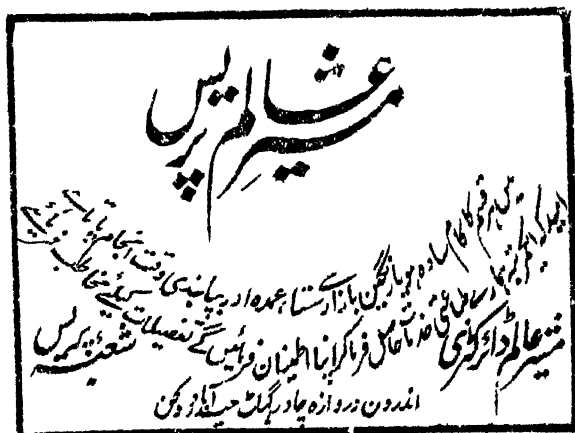 مشیر عالم پریس
میں ہر قسم کا کام سادہ ہو یا رنگین بازار سے سستا، عمدہ اور بپابندی وقت انجام پاتا ہے
امید کہ ایکمرتبہ ہمارے طباعتی خدمات حاصل فرما کر اپنا اطمینان فرمائیں گے تفصیلات کیلئے مخاطب فرمائیے
مشیر عالم ڈائرکٹری شعبہ پریس
اندرون دروازہ چادر گھاٹ حیدرآباد دکن